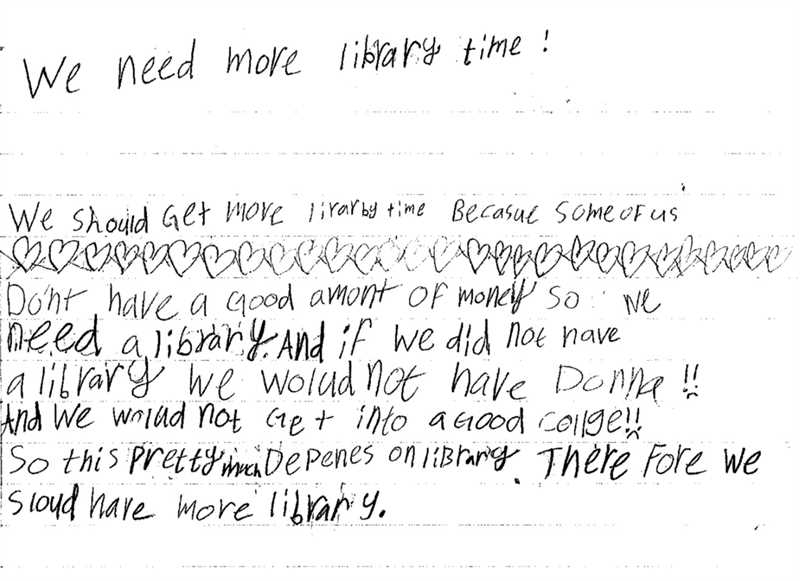 We need more library time!
We should Get more lirarby time Becasue some of us
Don't have a Good amont of money so we
need a library. And if we did not have
a library we wolud not have Donna!!
And we wolud not Get into a Good collge!!
So this pretty much Depenes on library. There Fore we
sloud have more library.